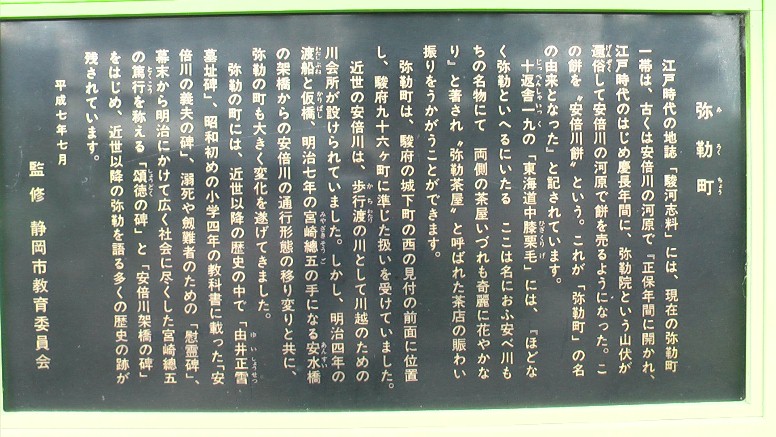 弥勒町
みろくちょう
江戸時代の地誌「駿河志料」には、現在の弥勒町
一帯は、古くは安倍川の河原で『正保年間に開かれ、
江戸時代のはじめ慶長年間に、弥勒院という山伏が
還俗して安倍川の河原で餅を売るようになった。こ
げんぞく
の餅を〝安倍川餅〟という。これが「弥勒町」の名
の由来となった』と記されています。
十返舎一九の「東海道中膝栗毛」には、『ほどな
じっぺんしゃいっく
ひざくりげ
く弥勒といへるにいたる ここは名におふ安べ川も
ちの名物にて 両側の茶屋いづれも奇麗に花やかな
り』と著され〝弥勒茶屋〟と呼ばれた茶店の賑わい
振りをうかがうことができます。
弥勒町は、駿府の城下町の西の見付の前面に位置
し、駿府九十六ヶ町に準じた扱いを受けていました。
近世の安倍川は、歩行渡の川として川越のための
かちわたり
川会所が設けられていました。しかし、明治四年の
渡船と仮橋、明治七年の宮崎總五の手になる安水橋
わたしぶね
かりばし
みやざきそうご
あんすい
の架橋からの安倍川の通行形態の移り変りと共に、
弥勒の町も大きく変化を遂げてきました。
弥勒の町には、近世以降の歴史の中で「由井正雪
ゆいしょうせつ
墓址碑」、昭和初めの小学四年の教科書に載った「安
倍川の義夫の碑」、溺死や剱難者のための「慰霊碑」、
幕末から明治にかけて広く社会に尽くした宮崎總五
の篤行を称える「頌徳の碑」と「安倍川架橋の碑」
とっこう
しょうとく
をはじめ、近世以降の弥勒を語る多くの歴史の跡が
残されています。
平成七年七月
監修 静岡市教育委員会